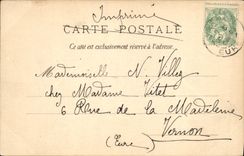 Imprimé
CARTE POSTALE
Ce côté est exclusivement réservé à l'adresse.
Mademoiselle N Villez
chez Madame Titet
6 Rue de la Madeleine
Vernon
(Eure)